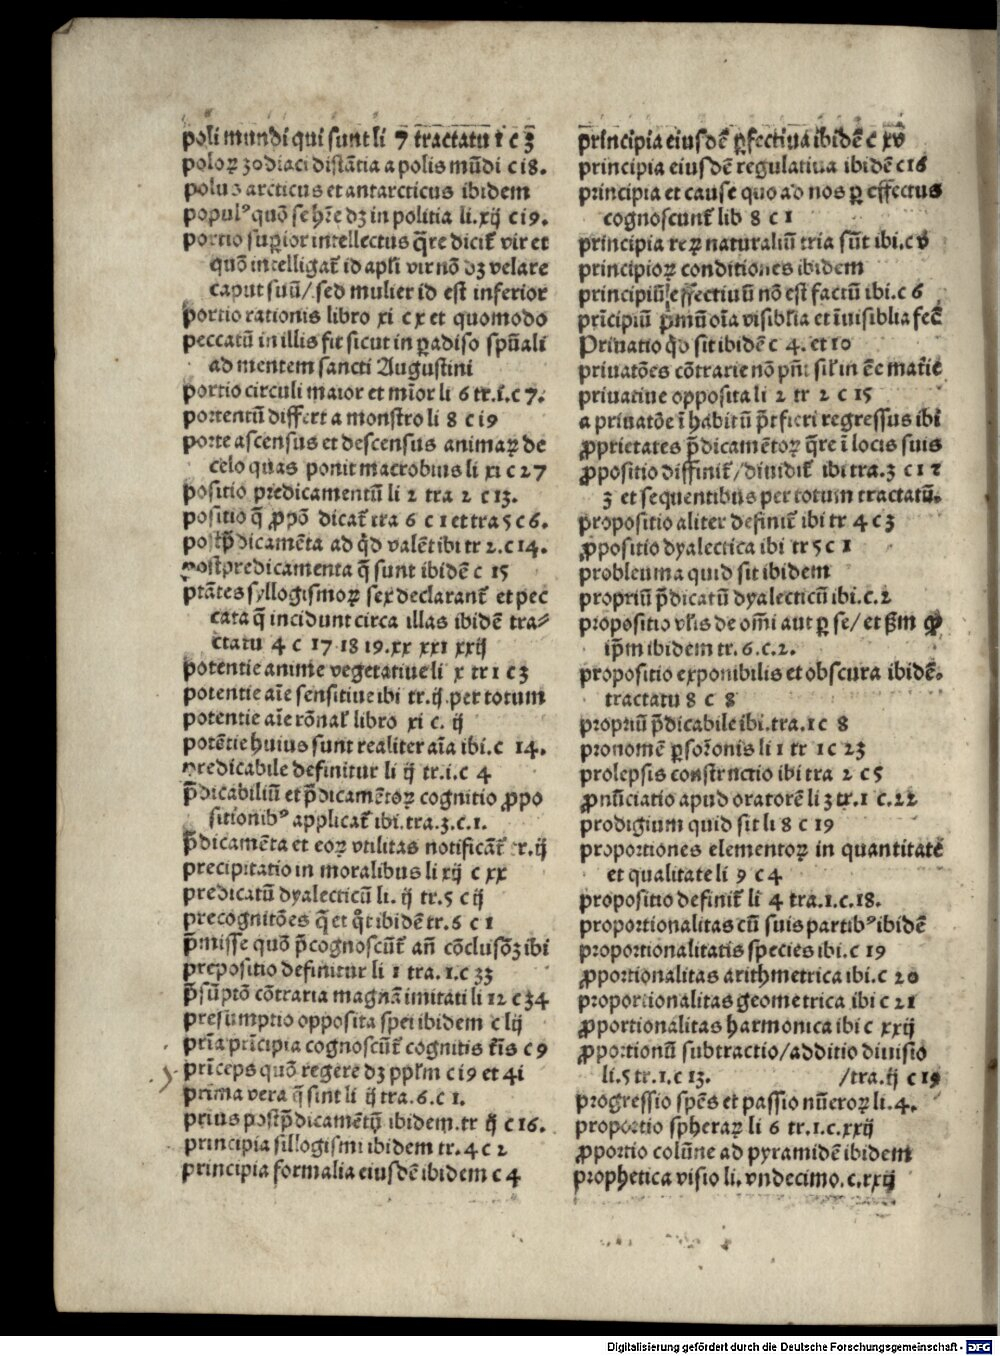 poli mundi qui sunt li 7 tractatu 1 c 3
poloꝝ zodiaci distātia a polis mūdi c i8.
polus arcticus et antarcticus ibidem
popul⁹ quō se hr̄e dʒ in politia li. xij c i9.
portio suꝑior intellectus q̄re dicit᷑ vir et
quō intelligat᷑ id apl̄i vir nō dʒ velare
caput suū/ sed mulier id est inferior
portio rationis libro xi c x et quomodo
peccatū in illis fit sicut in ꝑadiso spūali
ad mentem sancti Augustini
portio circuli maior et mīor li 6 tr.i.c 7.
portentū differt a monstro li 8 c i9
porte ascensus et descensus animaꝝ de
celo quas ponit macrobius li xi c 27
positio predicamentū li 2 tra 2 c i3.
positio q̄ ꝓpō dicat᷑ tra 6 c 1 et tra 5 c 6.
postp̄dicamēta ad qd̄ valēt ibi tr 2. c 14.
postpredicamenta q̄ sunt ibidē c 15
ptātes syllogismoꝝ sex declarant᷑ et pec
cata q̄ incidunt circa illas ibidē tra⸗
ctatu 4 c 17 18 19. xx xxi xxij
potentie anime vegetatiue li x tr 1 c 3
potentie aīe sensitiue ibi tr. ij. per totum
potentie aīe rōnal᷑ libro xi c. ij
potētie huius sunt realiter aīa ibi. c 14.
predicabile definitur li ij tr. i. c 4
p̄dicabiliū et p̄dicamētoꝝ cognitio ꝓpo
sitionib⁹ applicat᷑ ibi. tra. 3. c. 1.
p̄dicamēta et eoꝝ vtilitas notificāt᷑ tr. ij
precipitatio in moralibus li xij c xx
predicatū dyalecticū li. ij tr. 5 c ij
precognitōes q̄ et qt̄ ibidē tr. 6 c 1
p̄misse quō p̄cognoscūt᷑ an̄ cōclusōʒ ibi
prepositio definitur li 1 tra. 1. c 33
p̄sūptō cōtraria magnāimitati li 12 c 34
presumptio opposita spei ibidem c lij
prīa prīcipia cognoscūt᷑ cognitis t᷑is c 9
prīceps quō regere dʒ ppl̄m c i9 et 4i
prima vera q̄ sint li ij tra. 6. c 1.
prius postp̄dicamētū ibidem. tr ij c 16.
principia sillogismi ibidem tr. 4 c 2
principia formalia eiusdē ibidem c 4
principia eiusdē ꝑfectiua ibidē c xv
principia eiusdē regulatiua ibidē c 16
principia et cause quo ad nos ꝑ effectus
cognoscunt᷑ lib 8 c 1
principia reꝝ naturaliū tria sūt ibi. c v
principioꝝ conditiones ibidem
principiū effectiuū nō est factū ibi. c 6
prīcipiū pīmū oīa visibl̄ia et īuisiblia fec᷑
Priuatio qd̄ sit ibidē c 4. et 10
priuatōes cōtrarie nō pn̄t sil᷑ in ēe mat᷑ie
priuatiue opposita li 2 tr 2 c 15
a priuatōe ī habitū p̄t fieri regressus ibi
ꝓprietates p̄dicamētoꝝ q̄re ī locis suis
ꝓpositio diffinit᷑/diuidit᷑ ibi tra. 3 c 1 2
3 et sequentibus per totum tractatū.
propositio aliter definit᷑ ibi tr 4 c 3
ꝓpositio dyalectica ibi tr 5 c 1
probleuma quid sit ibidem
propriū p̄dicatū dyalecticū ibi. c. 2
propositio vl̄is de om̄i aut ꝑ se/ et ẜm ꝙ
ip̄m ibidem tr. 6. c. 2.
propositio exponibilis et obscura ibidē.
tractatu 8 c 8
propriū p̄dicabile ibi. tra. 1 c 8
pronomē ꝑsōonis li 1 tr 1 c 23
prolepsis constructio ibi tra 2 c 5
ꝓnūciatio apud oratorē li 3 tr. 1 c. 22
prodigium quid sit li 8 c 19
proportiones elementoꝝ in quantitate
et qualitate li 9 c 4
propositio definit᷑ li 4 tra. 1. c. 18.
proportionalitas cū suis partib⁹ ibidē
proportionalitatis species ibi. c 19
ꝓportionalitas arithmetrica ibi. c 20
proportionalitas geometrica ibi c 21
ꝓportionalitas harmonica ibi c xxij
ꝓportionū subtractio/additio diuisio
li. 5 tr. 1. c 13. /tra. ij c 19
progressio spēs et passio nūeroꝝ li. 4.
proportio spheraꝝ li 6 tr. 1. c. xxij
ꝓportio colūne ad pyramidē ibidem
prophetica visio li. vndecimo. c. xxij
Digitalisierung gefördert durch die Deutsche Forschungsgemeinschaft - DFG